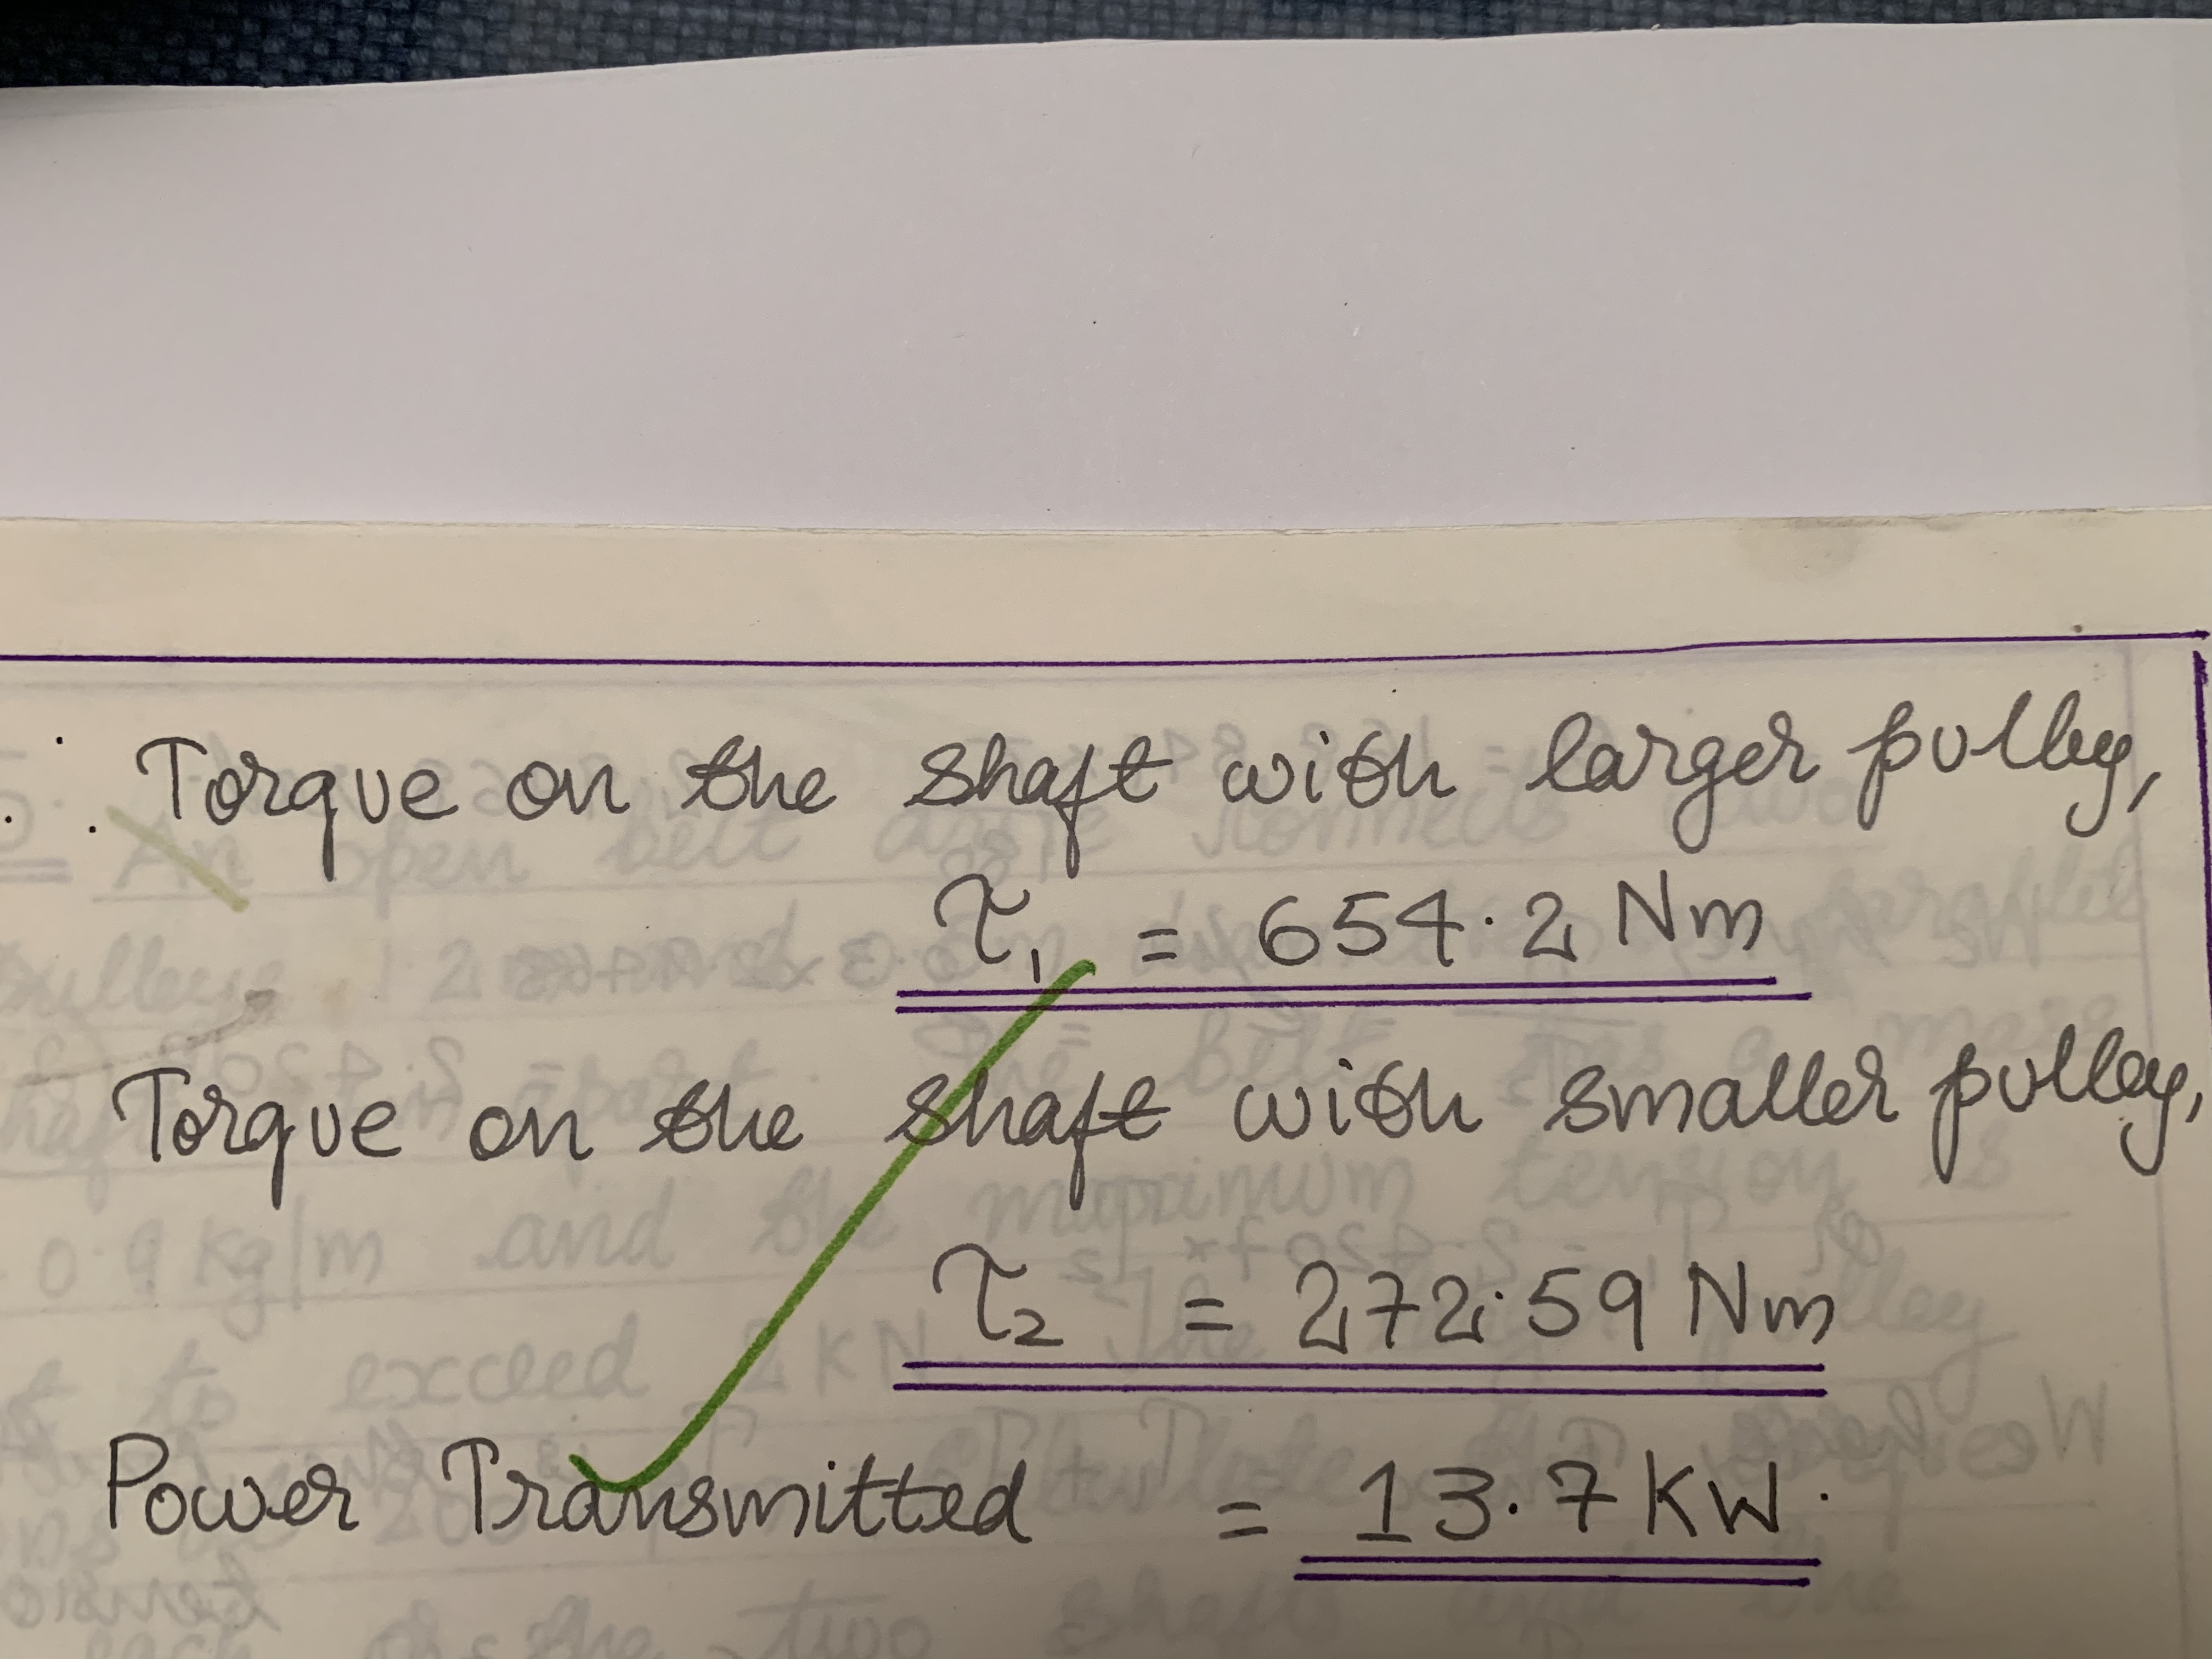 ∴ Torque on the shaft with larger pulley,
τ₁ = 654.2 Nm
Torque on the shaft with smaller pulley,
τ₂ = 272.59 Nm
Power Transmitted = 13.7 kW.